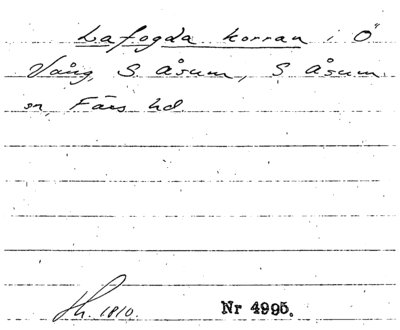 Lafogda korran i Ö
Vång, S. Åsum, S Åsum
sn, Färs hd.
Sh. 1810.
Nr 4995.